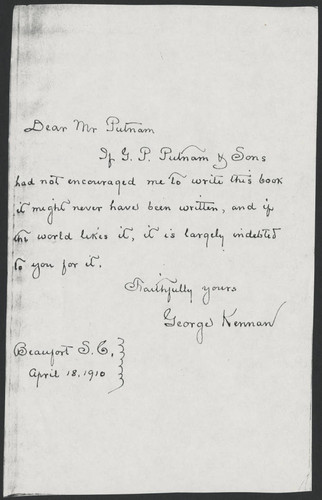 Dear Mr Putnam
If G. P. Putnam & Sons
had not encouraged me to write this book
it might never have been written, and if
the world likes it, it is largely indebted
to you for it.
Faithfully yours
George Kennan
Beaufort S. C.,
April 18, 1910